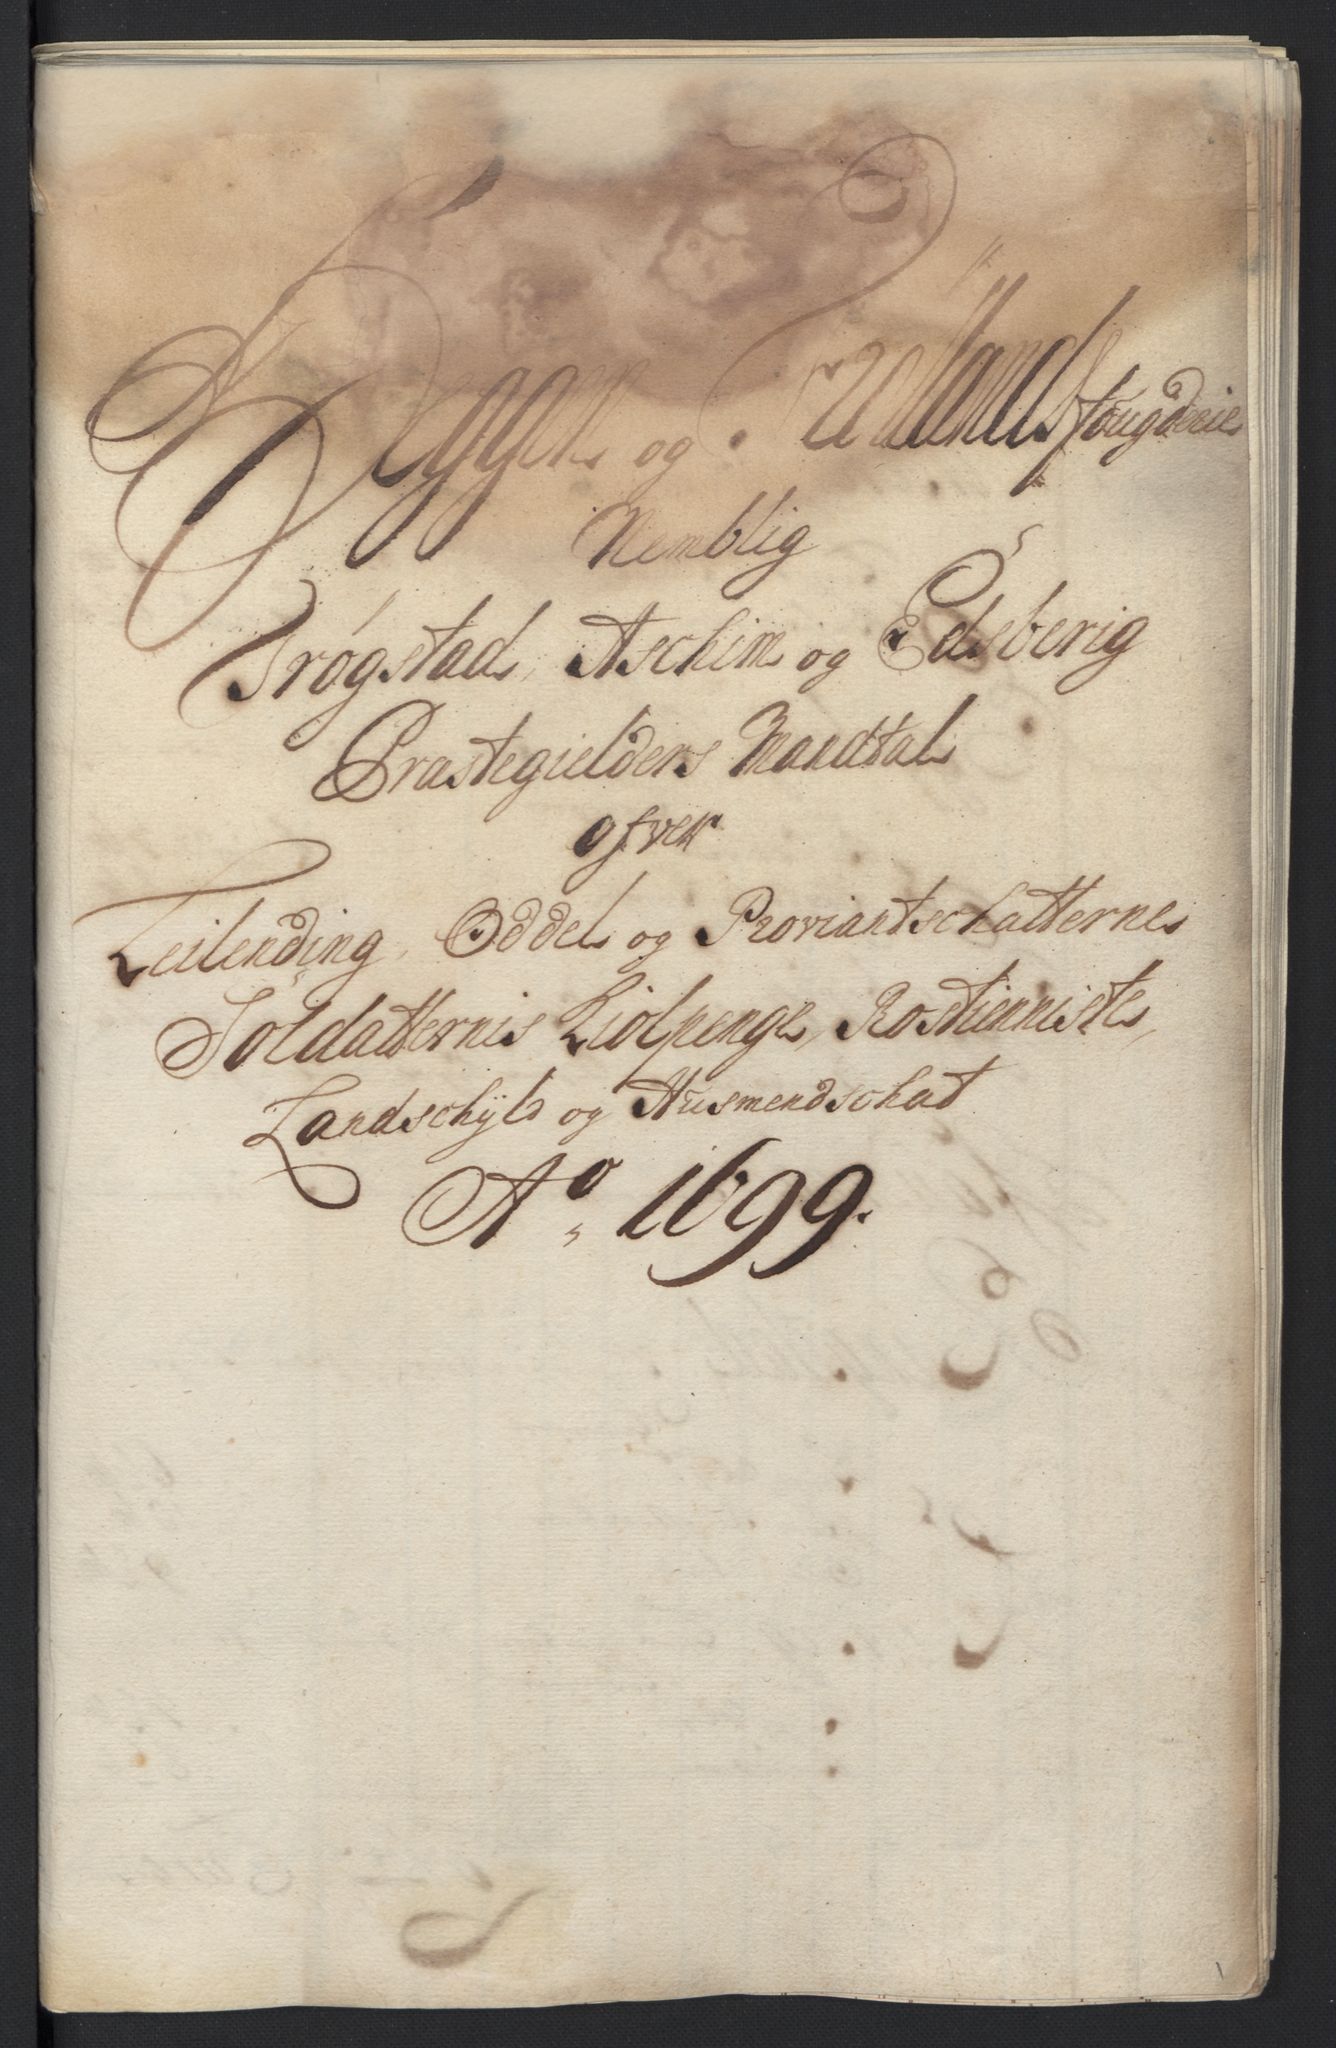 Heggen og Frølands fougderie
Nemblig
Trøgstad, Aschim og Edsberig
Præstegielders Mandtal
ofver
Leilending, Oddel og Proviantschatterne
Soldatternis Kiolpenge, Rostienniste,
Landschyld og Husmendschat
Ao 1699.
1